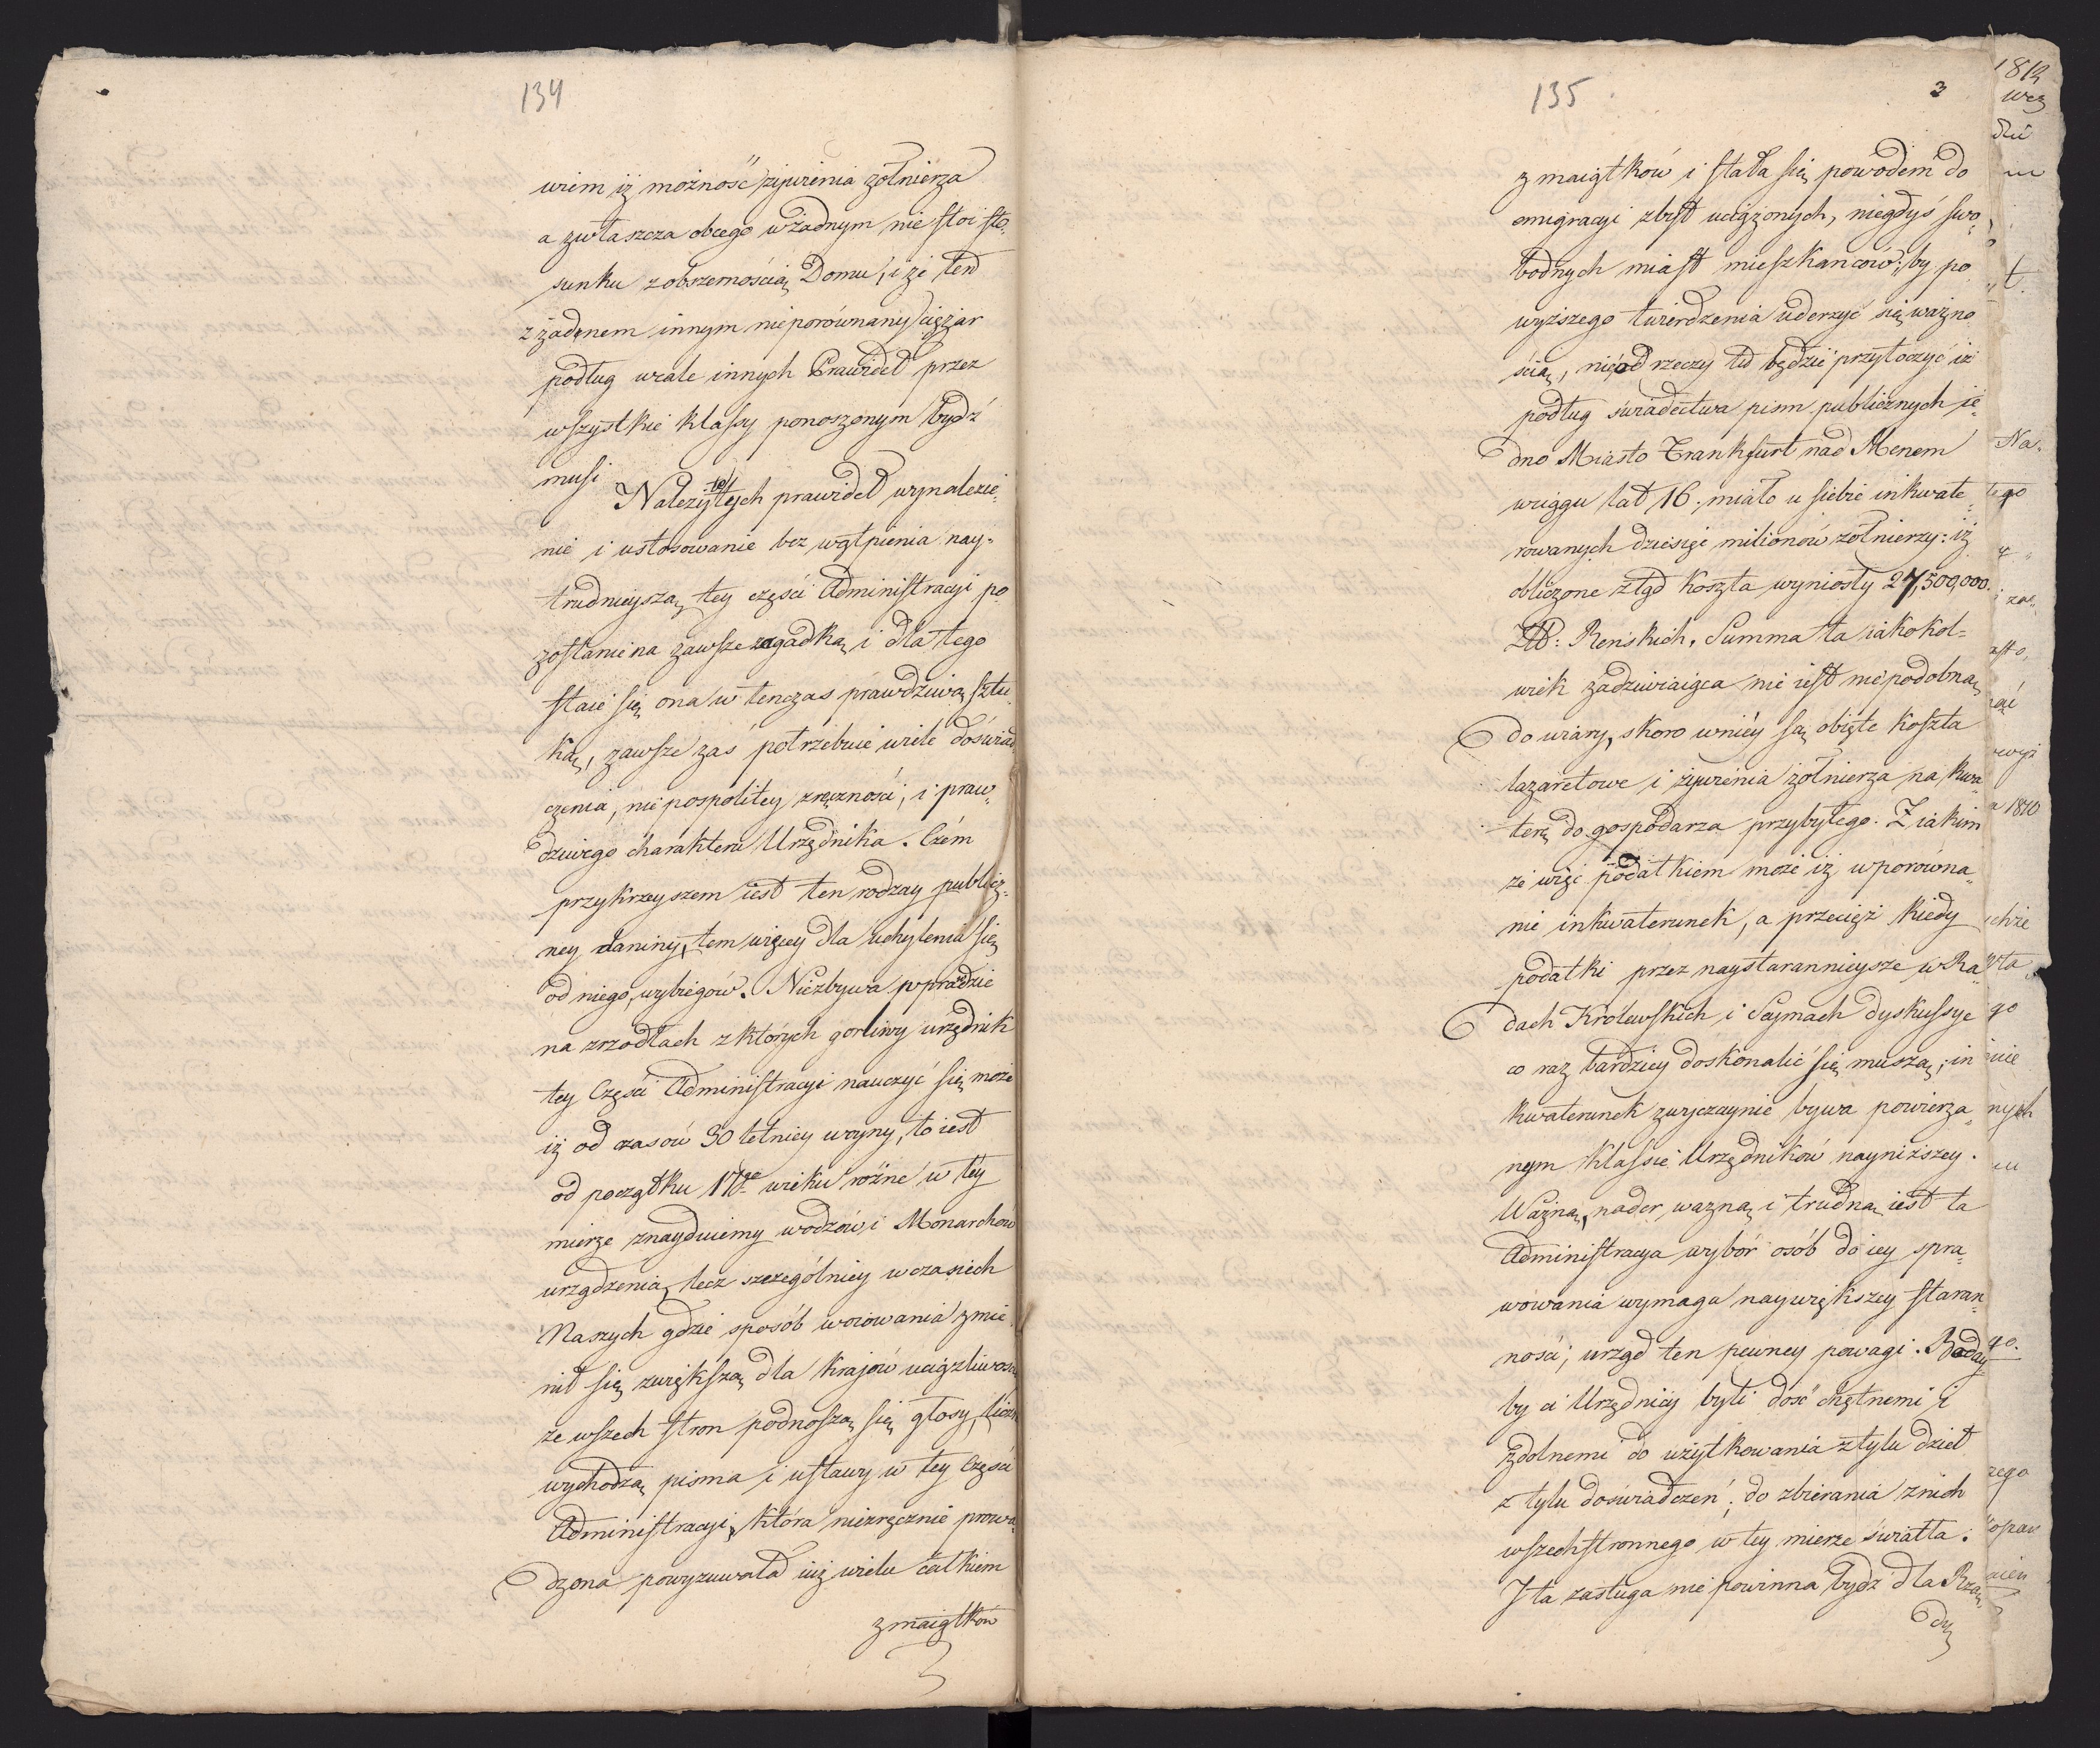 134
wiem iż możność żywienia żołnierza
a zwłaszcza obcego w żadnym nie stoi sto„
sunku z obszernością Domu, i że ten
z żadnem innym nieporównany ciężar
podług wcale innych Prawideł przez
wszystkie klassy ponoszonym bydź
musi
Należytych prawideł wynalezie„
nie i ustosowanie bez wątpienia nay„
trudnieyszą tey części Administracyi po
zostanie na zawsze zagadką i dla tego
staie się ona w tenczas prawdziwą sztu„
ką, zawsze zaś potrzebuie wiele doświad
czenia, niepospolitey zręczności, i praw„
dziwego charakteru Urzędnika. Czém
przykrzeyszem iest ten rodzay publicz„
ney daniny, tem więcey dla uchylenia się
od niego, wybiegów. Niezbywa wprawdzie
na zrzodłach z których gorliwy urzędnik
tey Części Administracyi nauczyć się może
iż od czasów 30 letniey woyny, to iest
od początku 17go wieku różne w téy
mierze znayduiemy wodzów i Monarchów
urządzenia, lecz szczególniey w czasiech
Naszych gdzie sposób woiowania zmie„
nił się zwiększą dla krajów uciążliwością
ze wszech stron podnoszą się głosy, liczne
wychodzą pisma i ustawy w tey Części
Administracyi, która niezręcznie prowa„
dzona powyzuwała iuż wielu całkiem
z maiątków
135
3
z maiątków i stała się powodem do
emigracyi zbyt uciążonych, niegdyś swo„
bodnych miast mieszkańców; by po„
wyższego twierdzenia uderzyć się ważno
ścią, nie od rzeczy tu będzie przytoczyć iż
podług świadectwa pism publicznych ie„
dno Miasto Frankfurt nad Menem
wciągu lat 16. miało u siebie inkwate„
rowanych dziesięć milionów żołnierzy: iż
obliczone ztąd koszta wyniosły 27,500,000.
Złt: Reńskich. Summa ta iakokol=
wiek zadziwiaiąca nie iest niepodobną
do wiary, skoro w niéy są obięte koszta
lazaretowe i żywienia żołnierza na kwa„
terę do gospodarza przybyłego. Z iakim
że więc podatkiem może iż w porówna„
nie inkwaterunek, a przecięż kiedy
podatki przez naystarannieysze w Ra„
dach Królewskich i Seymach dyskussye
co raz bardziey doskonalić się muszą; in
kwaterunek zwyczaynie bywa powierza„
nym klassie Urzędników nayniższey.
Ważną, nader ważną i trudną iest ta
Administracya wybór osób do iey spra„
wowania wymaga naywiększey staran„
ności; urząd ten pewney powagi. Boday
by ci Urzędnicy byli dość chętnemi i
zdolnemi do użytkowania z tylu dzieł
z tylu doświadczeń; do zbierania znich
wszechstronnego w tey mierze światła:
I ta zasługa nie powinna bydź dla Rzą„
dy
Na„
tego
1810
go
nych